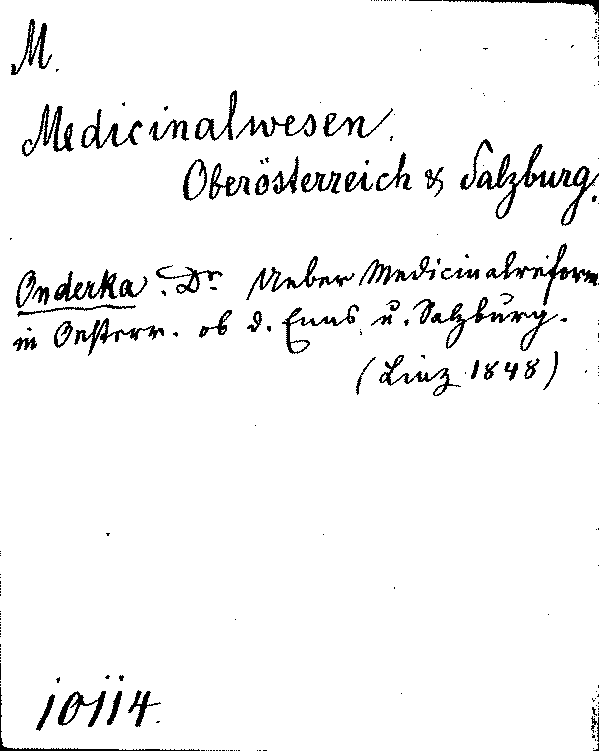 M.
Medicinalwesen.
Oberösterreich & Salzburg.
Onderka. Dr. Ueber Medicinalreform
in Oesterr. ob d. Enns u. Salzburg.
(Linz 1848)
10114.